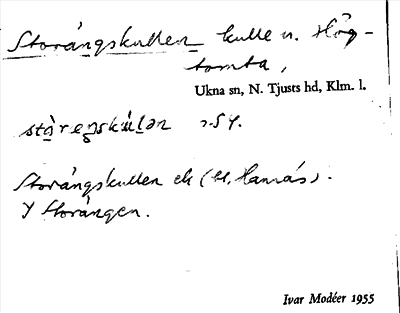 Storängskullen kulle n. Hög-
tomta,
Ukna sn, N. Tjusts hd, Klm. l.
Storängskullen ek (Ll. Hannäs).
Y Storängen.
Ivar Modéer 1955